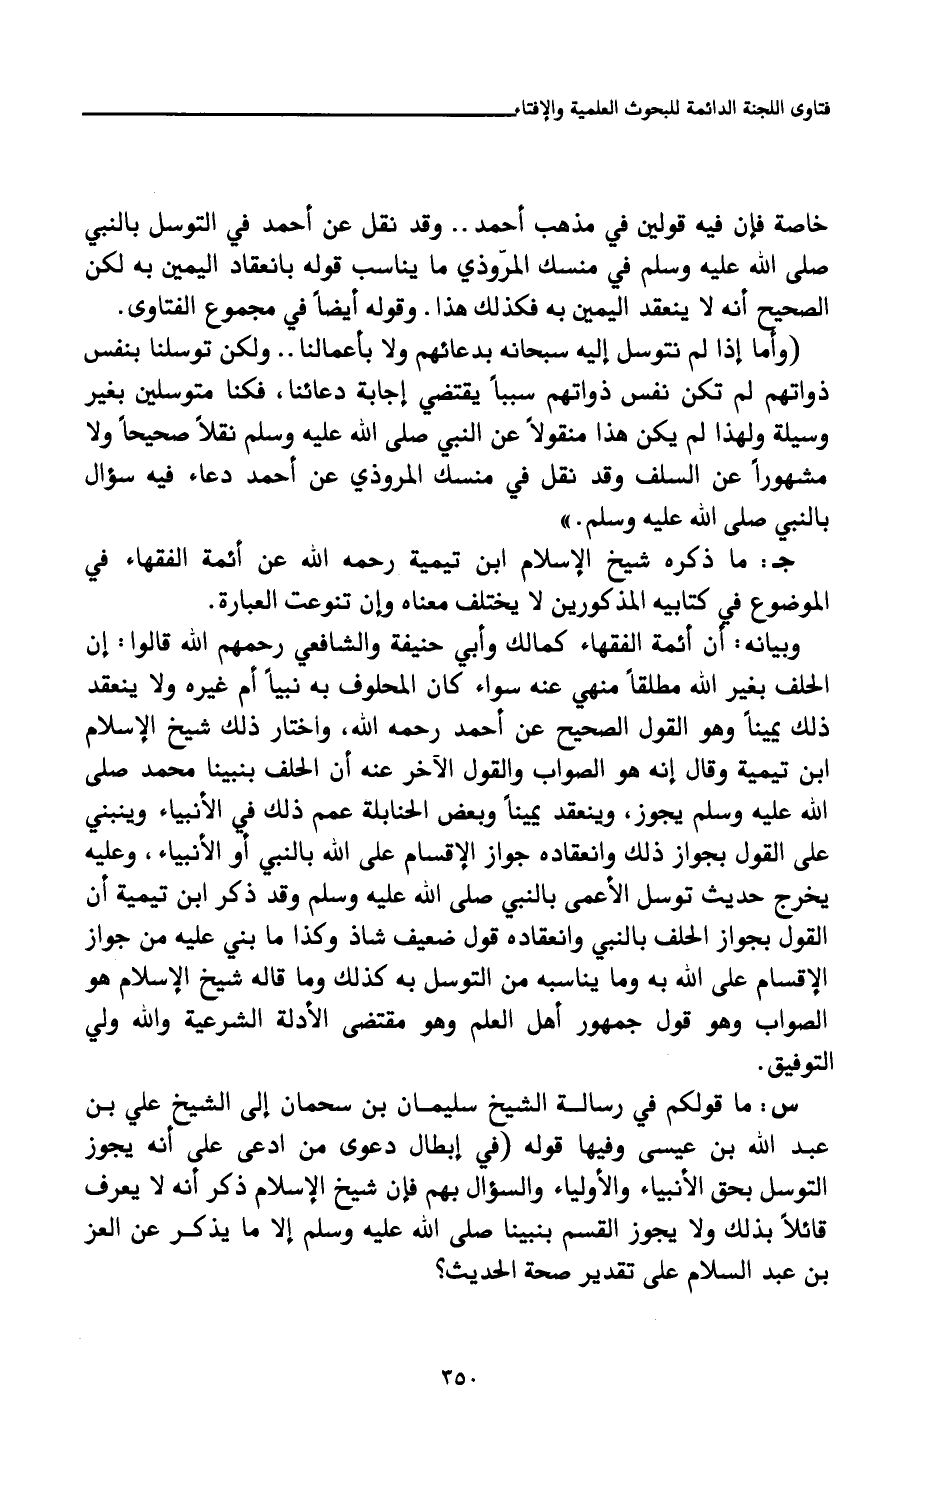 فتاوى اللجنة الدائمة للبحوث العلمية والإفتاء
خاصة فإن فيه قولين في مذهب أحمد .. وقد نقل عن أحمد في التوسل بالنبي
صلى الله عليه وسلم في منسك المرّوذي ما يناسب قوله بانعقاد اليمين به لكن
الصحيح أنه لا ينعقد اليمين به فكذلك هذا. وقوله أيضاً في مجموع الفتاوى.
(وأما إذا لم نتوسل إليه سبحانه بدعائهم ولا بأعمالنا .. ولكن توسلنا بنفس
ذواتهم لم تكن نفس ذواتهم سبباً يقتضي إجابة دعائنا، فكنا متوسلين بغير
وسيلة ولهذا لم يكن هذا منقولاً عن النبي صلى الله عليه وسلم نقلاً صحيحاً ولا
مشهوراً عن السلف وقد نقل في منسك المروذي عن أحمد دعاء فيه سؤال
بالنبي صلى الله عليه وسلم.»
جـ: ما ذكره شيخ الإسلام ابن تيمية رحمه الله عن أئمة الفقهاء في
الموضوع في كتابيه المذكورين لا يختلف معناه وإن تنوعت العبارة.
وبيانه: أن أئمة الفقهاء كمالك وأبي حنيفة والشافعي رحمهم الله قالوا: إن
الحلف بغير الله مطلقاً منهي عنه سواء كان المحلوف به نبياً أم غيره ولا ينعقد
ذلك يميناً وهو القول الصحيح عن أحمد رحمه الله، واختار ذلك شيخ الإسلام
ابن تيمية وقال إنه هو الصواب والقول الآخر عنه أن الحلف بنبينا محمد صلى
الله عليه وسلم يجوز، وينعقد يميناً وبعض الحنابلة عمم ذلك في الأنبياء وينبني
على القول بجواز ذلك وانعقاده جواز الإقسام على الله بالنبي أو الأنبياء، وعليه
يخرج حديث توسل الأعمى بالنبي صلى الله عليه وسلم وقد ذكر ابن تيمية أن
القول بجواز الحلف بالنبي وانعقاده قول ضعيف شاذ وكذا ما بني عليه من جواز
الإقسام على الله به وما يناسبه من التوسل به كذلك وما قاله شيخ الإسلام هو
الصواب وهو قول جمهور أهل العلم وهو مقتضى الأدلة الشرعية والله ولي
التوفيق.
س: ما قولكم في رسالة الشيخ سليمان بن سحمان إلى الشيخ علي بن
عبد الله بن عيسى وفيها قوله (في إبطال دعوى من ادعى على أنه يجوز
التوسل بحق الأنبياء والأولياء والسؤال بهم فإن شيخ الإسلام ذكر أنه لا يعرف
قائلاً بذلك ولا يجوز القسم بنبينا صلى الله عليه وسلم إلا ما يذكر عن العز
بن عبد السلام على تقدير صحة الحديث؟
٣٥٠